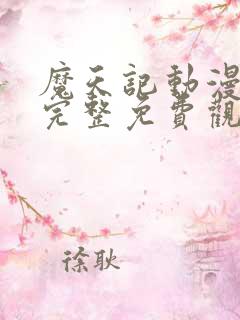 魔天記動漫
完整免費觀
徐耿